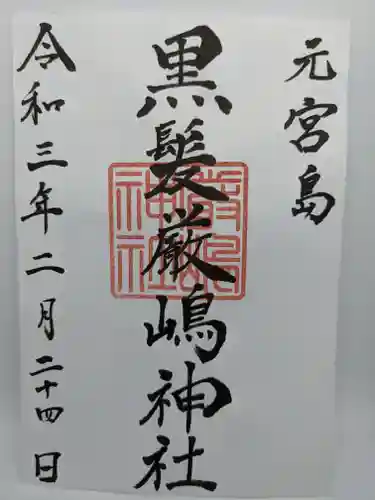 元宮島
黒髪厳嶋神社
厳嶋神社
令和三年二月二十四日